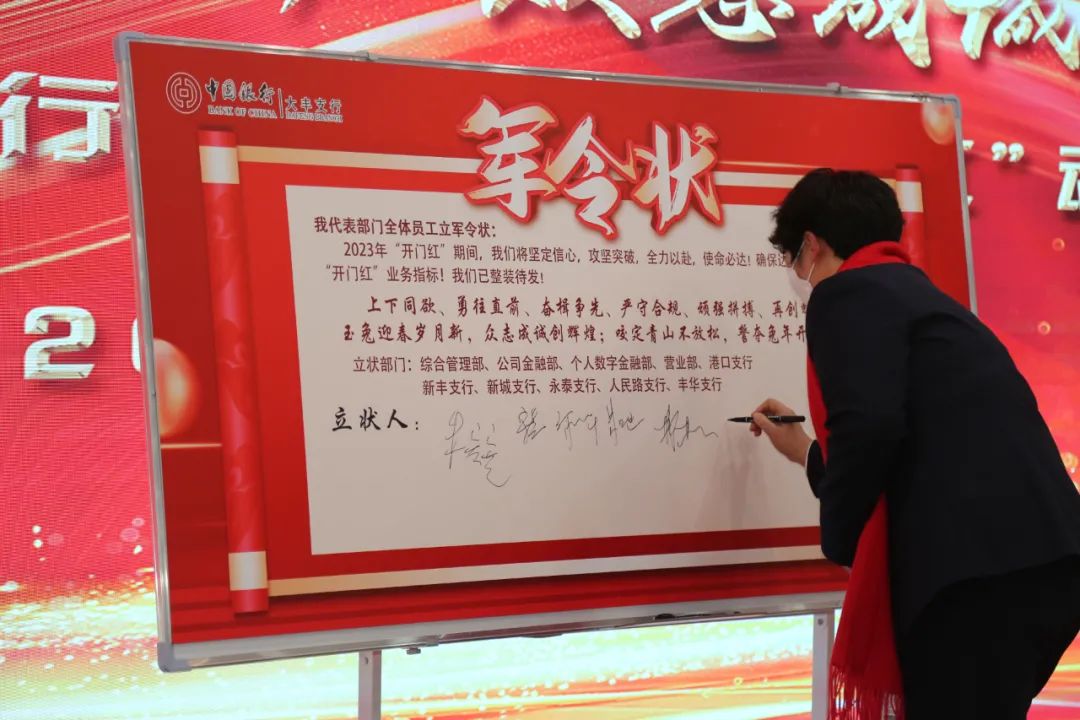 中国银行 大丰支行
BANK OF CHINA DAFENG BRANCH
军令状
我代表部门全体员工立军令状：
2023年“开门红”期间，我们将坚定信心，攻坚突破，全力以赴，使命必达！确保达
“开门红”业务指标！我们已整装待发！
上下同欲、勇往直前、奋楫争先、严守合规、顽强拼搏、再创
玉兔迎春岁月新，众志成诚创辉煌；咬定青山不放松，誓夺兔年开
立状部门：综合管理部、公司金融部、个人数字金融部、营业部、港口支行
新丰支行、新城支行、永泰支行、人民路支行、丰华支行
立状人：
行
”
2